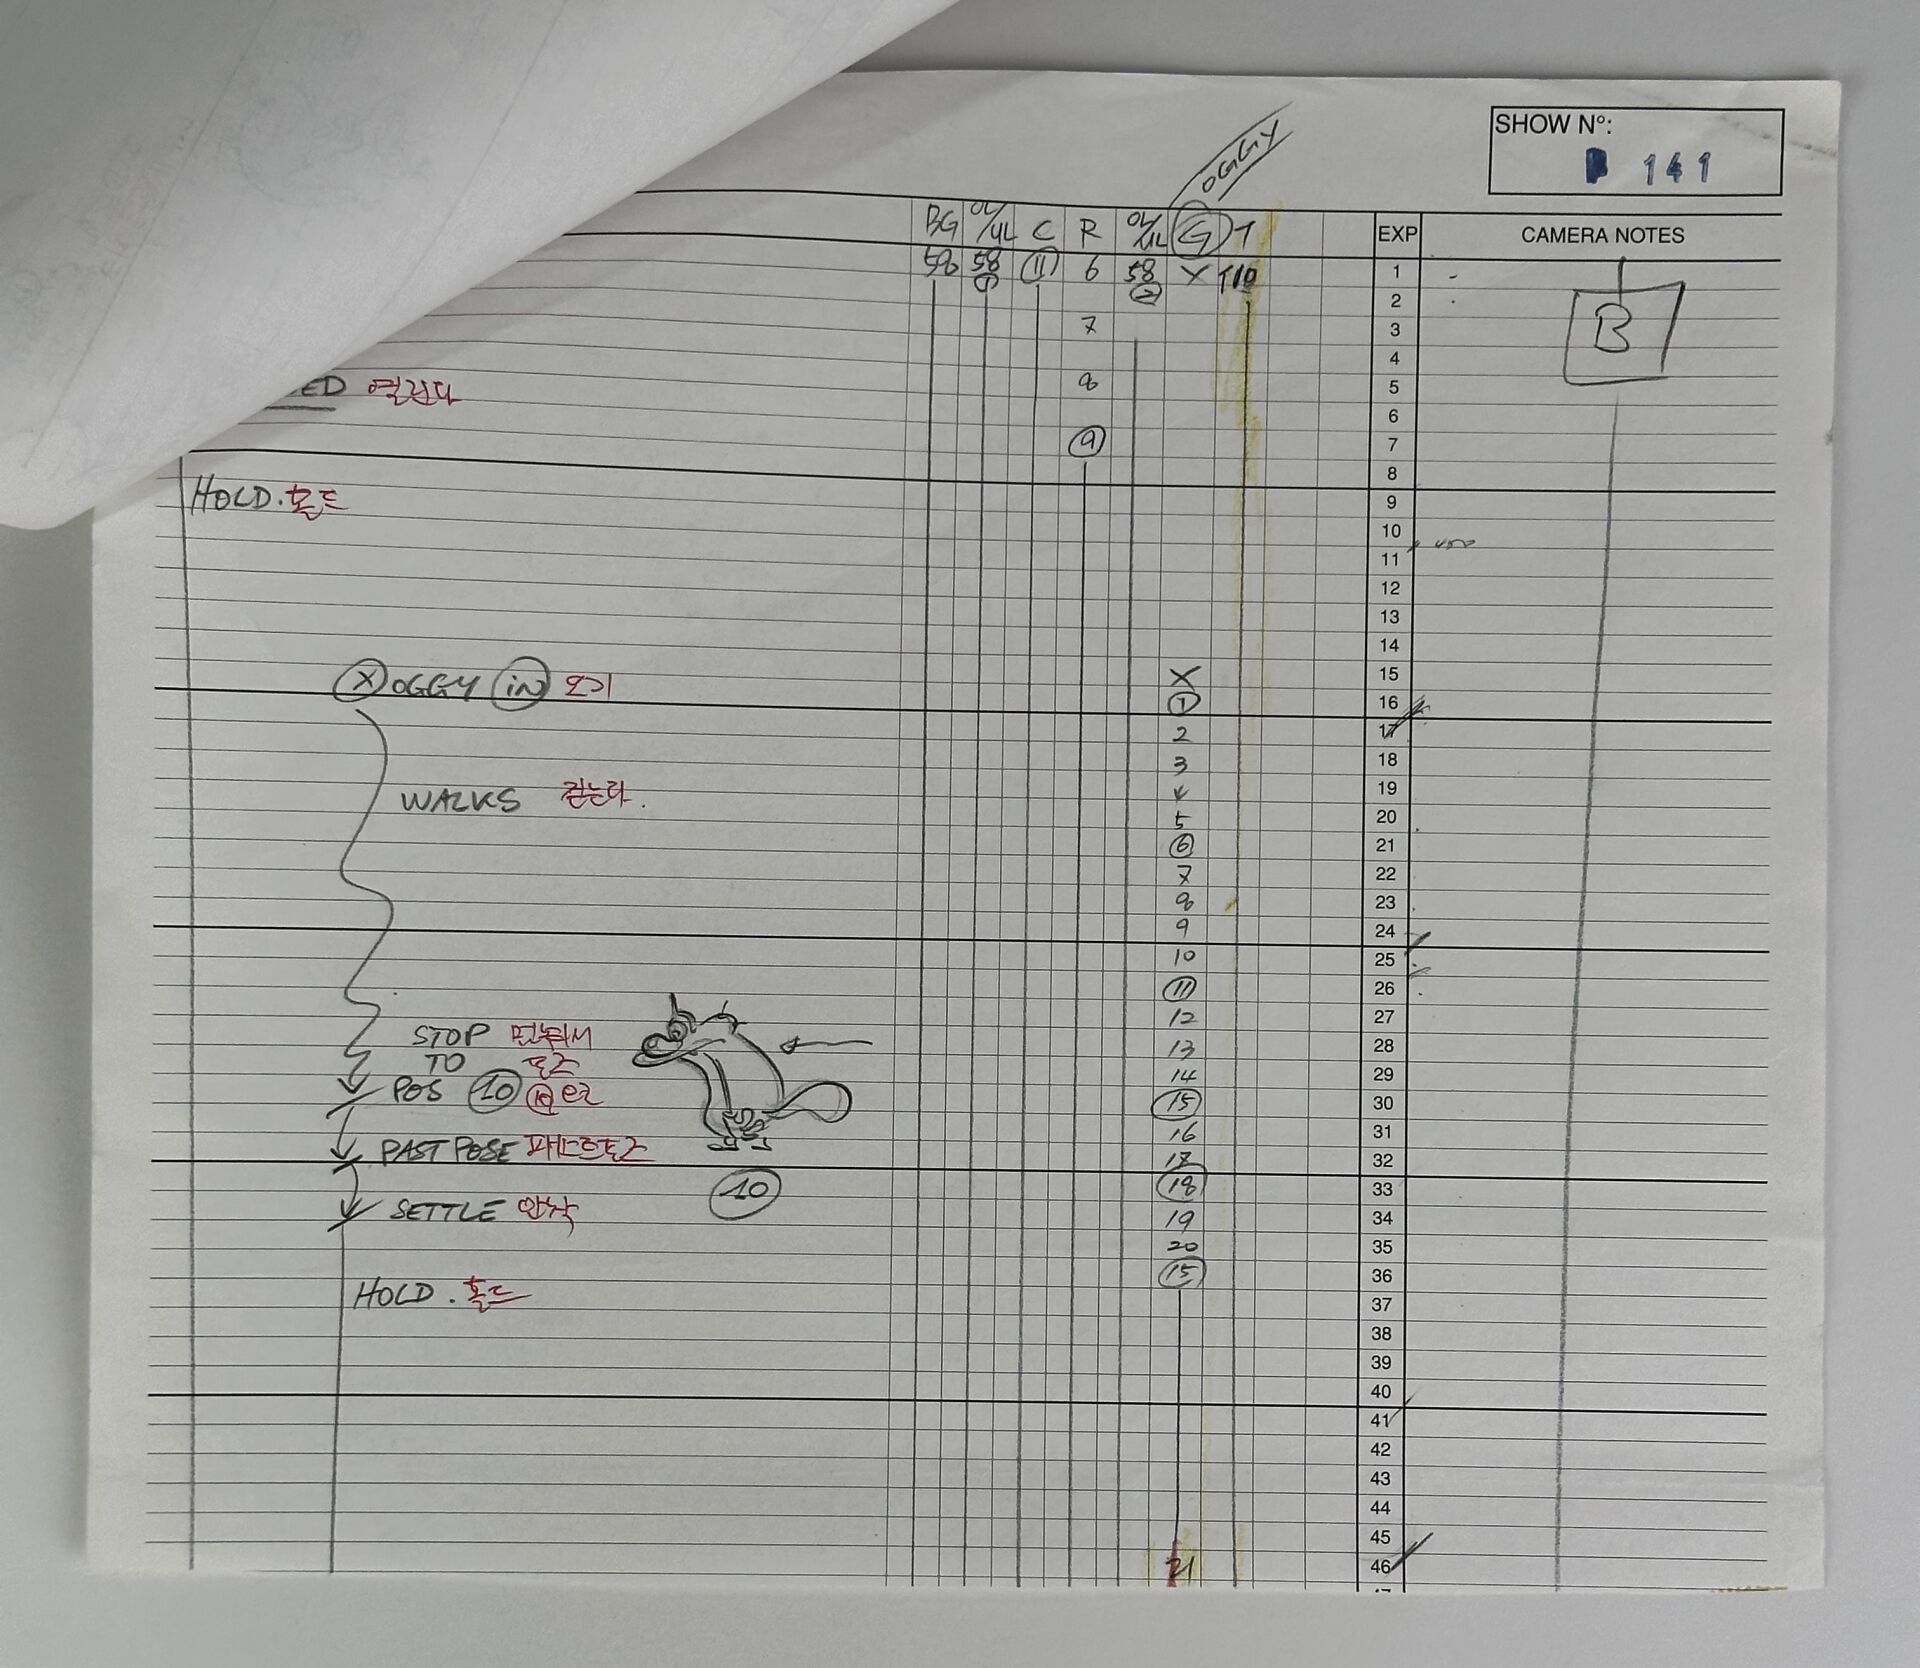 SHOW Nº:
141
OGGY
BG OL/UL C R OL/UL G T EXP CAMERA NOTES
58 58 11 6 58 X T10 1
1 2 2
B
7 3
4
ED 열린다 8 5
6
9 7
8
HOLD. 홀드 9
10
11
12
13
14
X OGGY IN 오기 X 15
1 16
2 17
3 18
WALKS 걷는다. 4 19
5 20
6 21
7 22
8 23
9 24
10 25
11 26
12 27
STOP 멈춰서 13 28
TO 포즈 14 29
POS 10 10 으로 15 30
16 31
PAST POSE 패스트포즈 17 32
10 18 33
SETTLE 안착 19 34
20 35
15 36
HOLD. 홀드 37
38
39
40
41
42
43
44
45
21 46